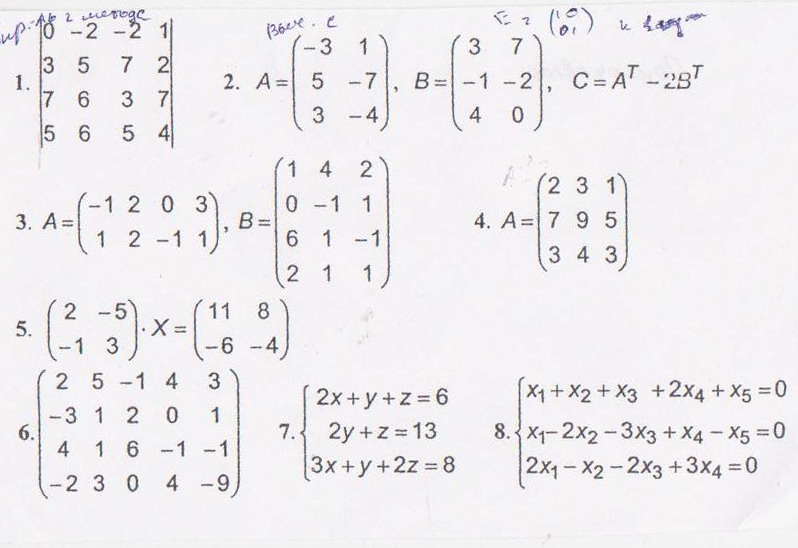 2 метода Выч. C E = (1 0 0 1) к
1. |0 -2 -2 1|
|3 5 7 2|
|7 6 3 7|
|5 6 5 4|
2. A = (-3 1
5 -7
3 -4), B = (3 7
-1 -2
4 0), C = Aᵀ - 2Bᵀ
3. A = (-1 2 0 3
1 2 -1 1), B = (1 4 2
0 -1 1
6 1 -1
2 1 1)
4. A = (2 3 1
7 9 5
3 4 3)
5. (2 -5
-1 3) · X = (11 8
-6 -4)
6. (2 5 -1 4 3
-3 1 2 0 1
4 1 6 -1 -1
-2 3 0 4 -9)
7. {2x + y + z = 6
2y + z = 13
3x + y + 2z = 8
8. {x₁ + x₂ + x₃ + 2x₄ + x₅ = 0
x₁ - 2x₂ - 3x₃ + x₄ - x₅ = 0
2x₁ - x₂ - 2x₃ + 3x₄ = 0